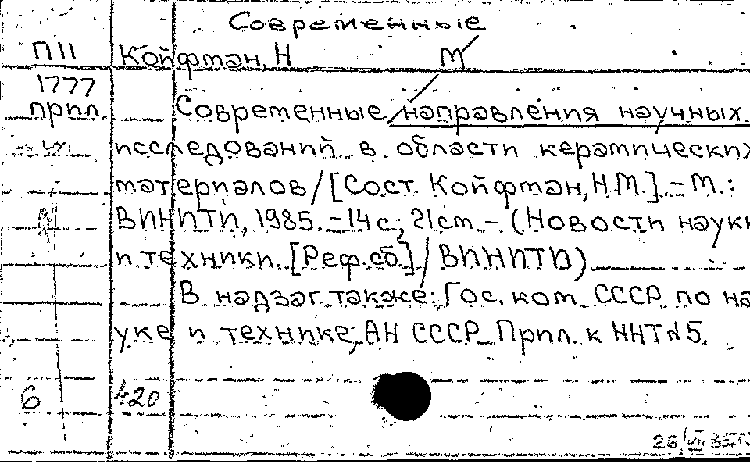 Современные
П11 Койфман, Н М
1777
прпл. Современные направления научных
исследований в области керамических
материалов / [Сост. Койфман, Н.М.]. – М.:
ВИНИТИ, 1985. – 14 с.; 21 см. – (Новости науки
и техники. [Реф. сб.] / ВИНИТИ)
В надзаг. также: Гос. ком. СССР по на
уке и технике, АН СССР. Прил. к ННТ №5.
6 420
26